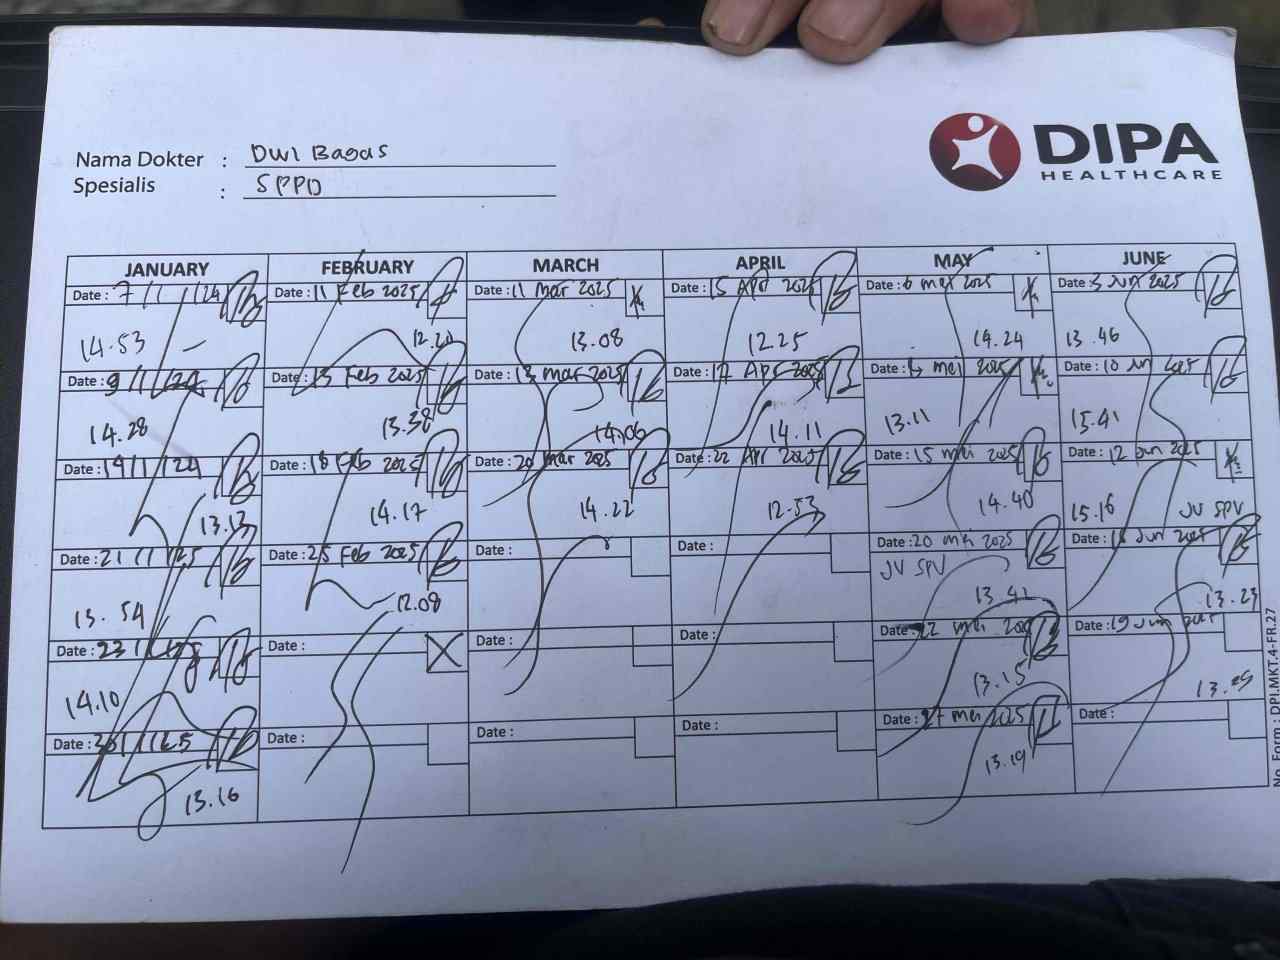 DIPA
HEALTHCARE
Nama Dokter : Dwi Bagas
Spesialis : SPPD
JANUARY FEBRUARY MARCH APRIL MAY JUNE
Date : 7/1/24 Date : 11 Feb 2025 Date : 11 Mar 2025 Date : 15 Apr 2025 Date : 6 mei 2025 Date : 3 Jun 2025
14.53 12.20 13.08 12.25 14.24 13.46
Date : 9/1/24 Date : 13 Feb 2025 Date : 13 mar 2025 Date : 17 Apr 2025 Date : mei 2025 Date : 10 Jun 2025
14.28 13.38 14.06 14.11 13.11 15.41
Date : 14/1/24 Date : 18 Feb 2025 Date : 20 Mar 2025 Date : 22 Apr 2025 Date : 15 mei 2025 Date : 12 Jun 2025
13.13 14.17 14.22 12.53 14.40 15.16 JV SPV
Date : 21/1/25 Date : 25 Feb 2025 Date : Date : Date : 20 mei 2025 Date : Jun 2025
13.54 12.08 JV SPV 13.41 13.23
Date : 23/1/25 Date : Date : Date : Date : 22 mei 2025 Date : 19 Jun 2025
14.10 13.15
Date : 30/1/25 Date : Date : Date : Date : 27 mei 2025 Date :
13.16 13.19
No. Form : DPI.MKT.4-FR.27